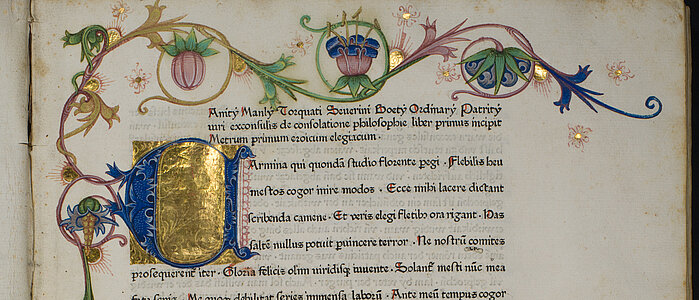 Anitÿ Manlÿ Torquati Seuerini Boetÿ Ordinarÿ Patritÿ
uiri exconsulis de consolatione philosophie liber primus incipit
Metrum primum eroicum elegiacum.
Carmina qui quondā studio florente pegi · Flebilis heu
mestos cogor inire modos · Ecce mihi lacere dictant
scribenda camene · Et ueris elegi fletibꝰ ora rigant · Has
saltē nullus potuit puincere terror · Ne nostrū comites
prosequerent iter · Gloria felicis olim uiridisqꝫ iuuente · Solant mesti nūc mea
fata senis · debilitat series immensa laborū · Ante meū tempus cogor